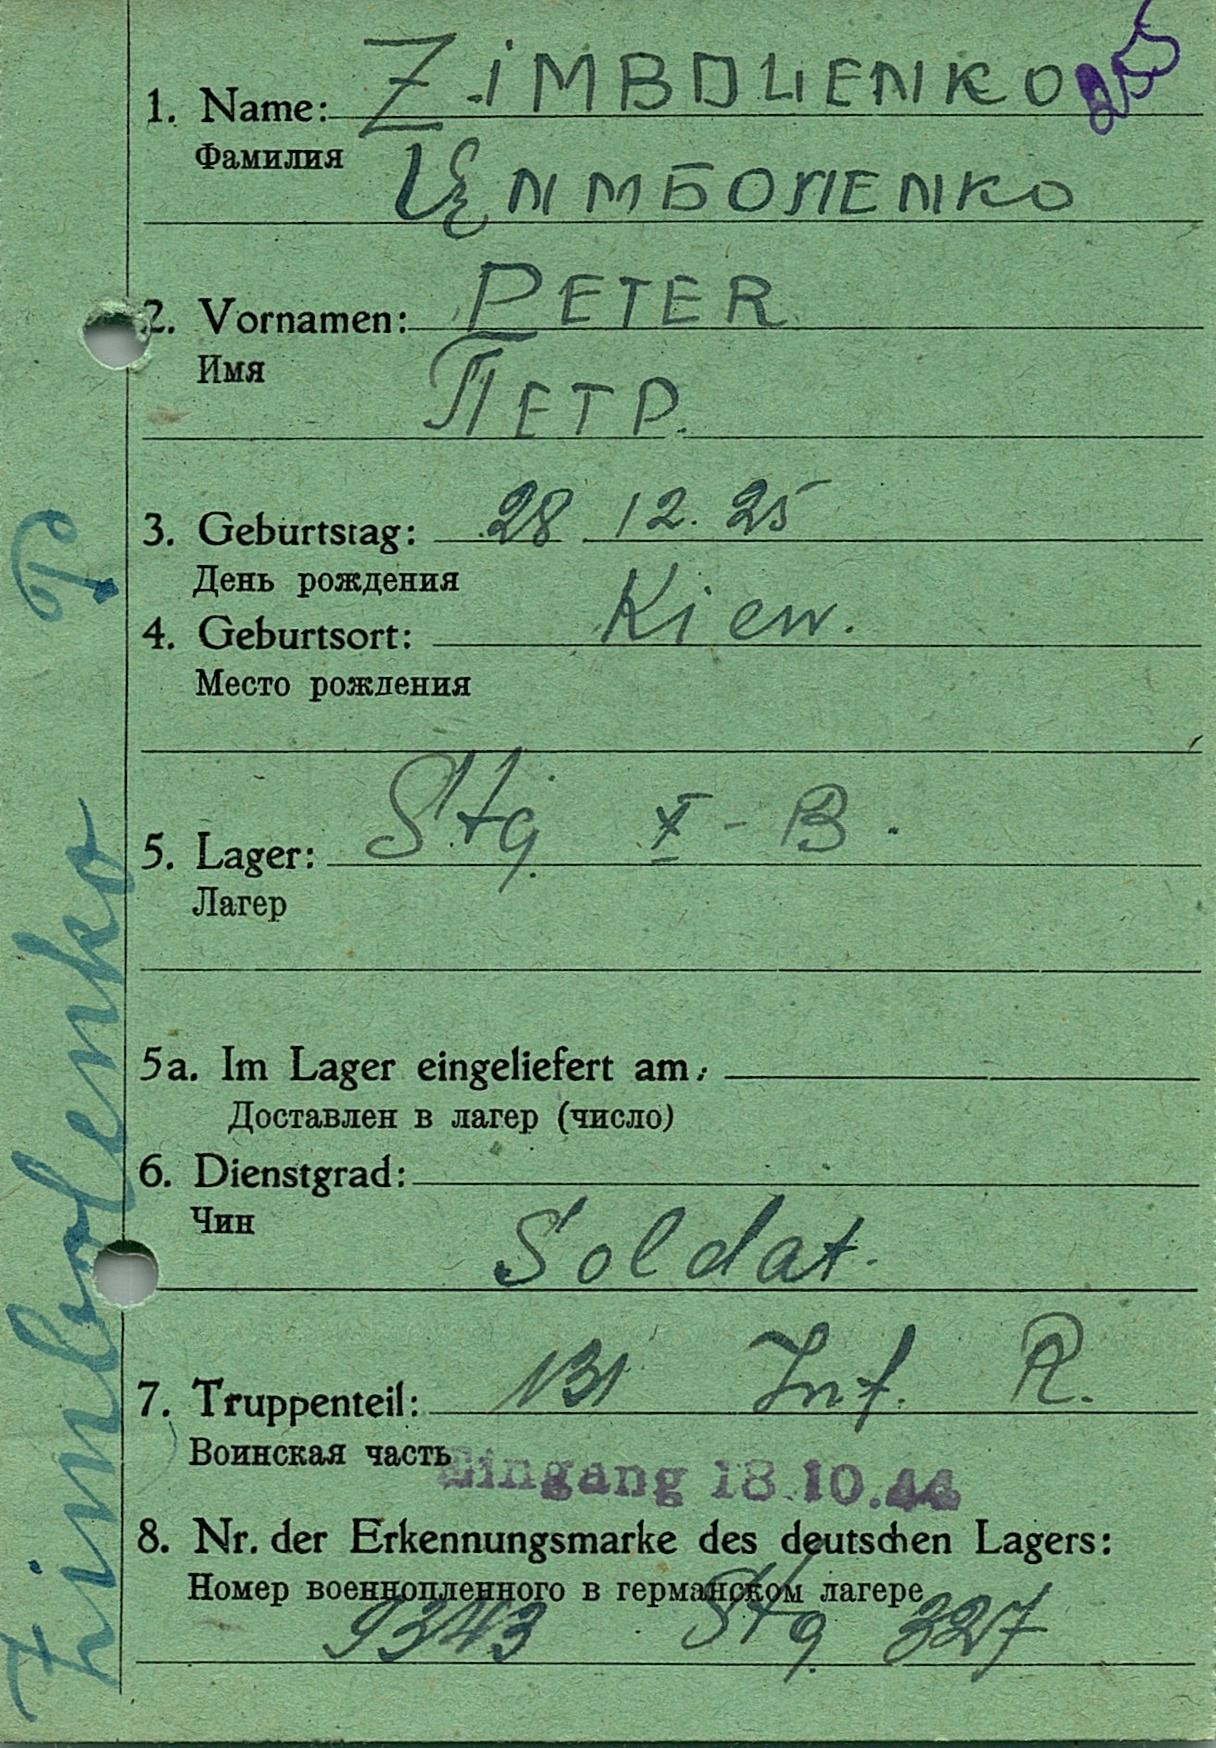 1. Name: ZIMBOLENKO 255
Фамилия
ЦИМБОЛЕНКО
2. Vornamen: PETER
Имя
ПЕТР.
3. Geburtstag: 28 12. 25
День рождения
4. Geburtsort: Kiew.
Место рождения
5. Lager: Stg. X - B.
Лагер
5a. Im Lager eingeliefert am:
Доставлен в лагер (число)
6. Dienstgrad:
Чин
Soldat.
7. Truppenteil: 131 Inf. R.
Воинская часть
Eingang 18.10.44
8. Nr. der Erkennungsmarke des deutschen Lagers:
Номер военнопленного в германском лагере
9343 Stg. 327
Zimbolenko P.